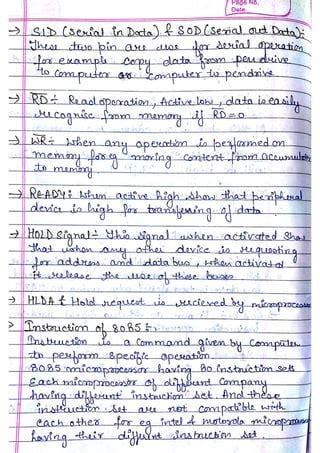 Page No.
Date
→ SID (Serial in Data) & SOD (Serial out Data):-
These two pin are use for serial operation
for example copy data from pendrive
to computer or computer to pendrive
→ RD:- Read operation, Active low, data is easily
recognise from memory if RD=0
→ WR:- When any operation is performed on
memory for eg moving content from accumulator
to memory.
→ READY: When active high show that peripheral
device is high for transfering of data
→ HOLD Signal:- This signal when activated show
that when any other device is requesting
for address and data bus, when activated
it release the use of these buses
→ HLDA & Hold request is recieved by microprocessor
→ Instruction of 8085:-
Instruction is a command given by Computer
to perform specific operation
8085 microprocessor having 80 instruction sets
Each microprocessor of different Company
having different instruction set And these
instruction set are not compatible with
each other for eg intel & motorola microprocessor
having their different instruction set.